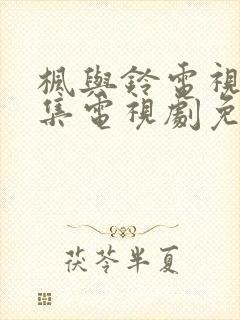 楓與鈴電視
集電視劇免
茯苓半夏